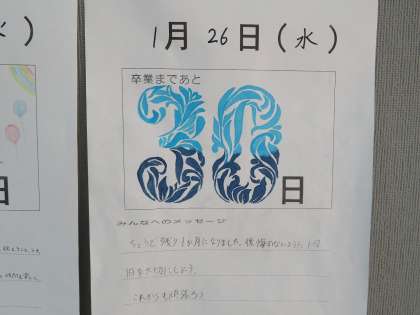 1月 26日(水)
卒業まであと
30日
みんなへのメッセージ
ちょうど残り1か月になりました。後悔のないように、1日
1日を大切にしよう。
これからも頑張ろう
水)
日